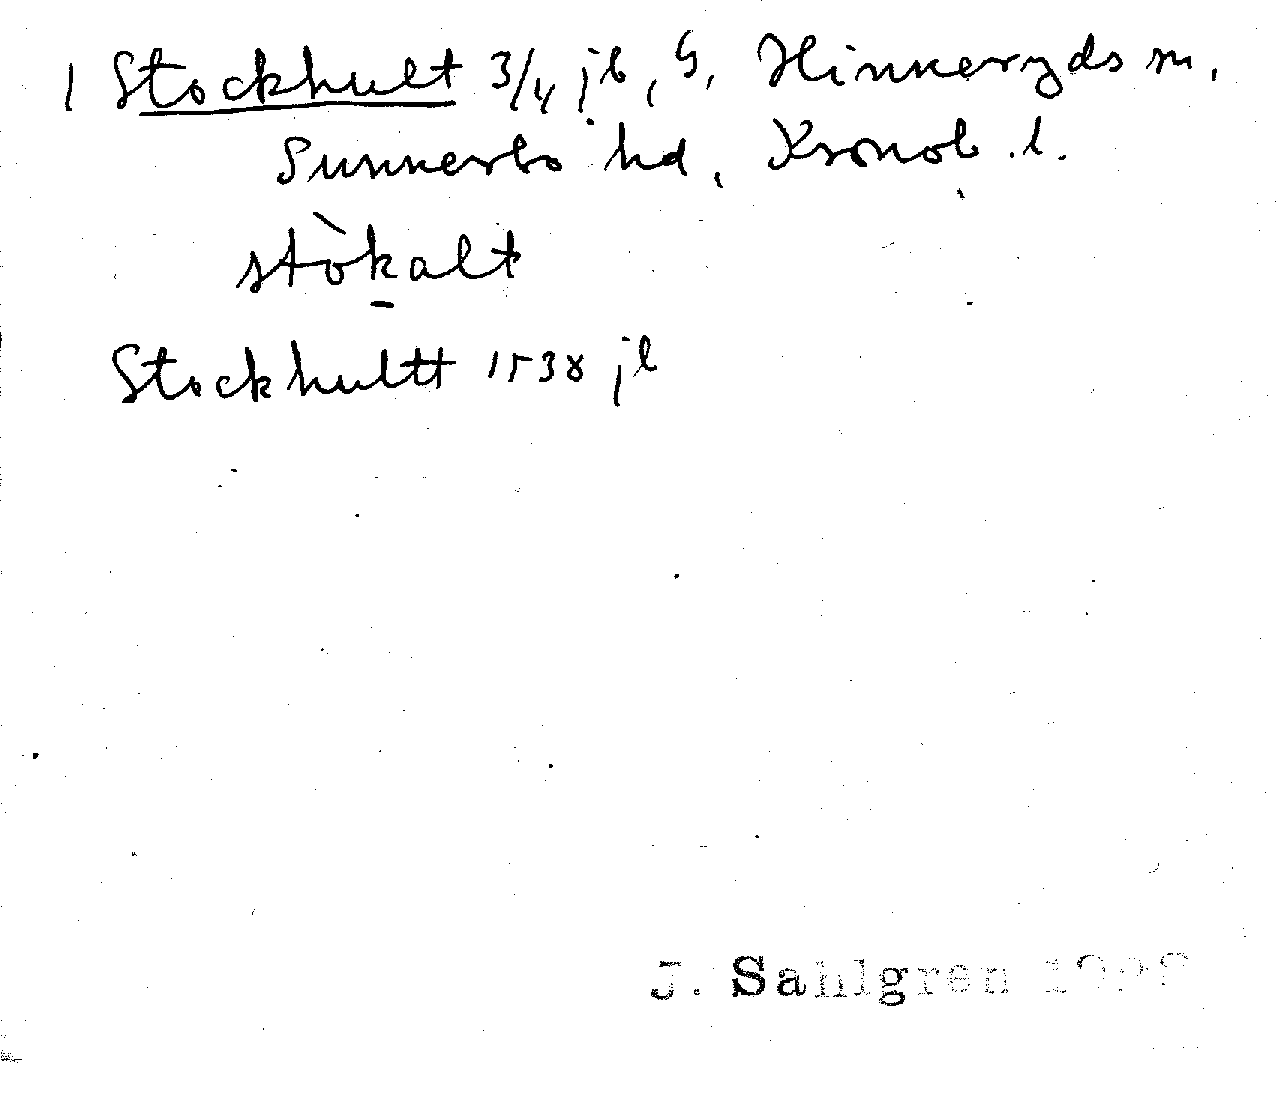 1 Stockhult 3/4 jb, G, Hinneryds sn,
Sunnerbo hd, Kronob. l.
stòkalt
Stockhultt 1538 jb
J. Sahlgren